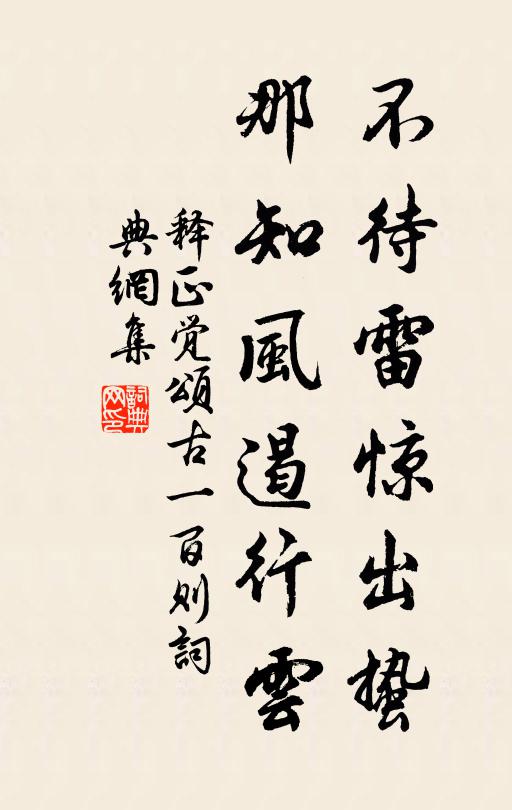 不待雷惊出蛰
那知風遏行雲
释正觉頌古一百则詞
典網集
詞典网印